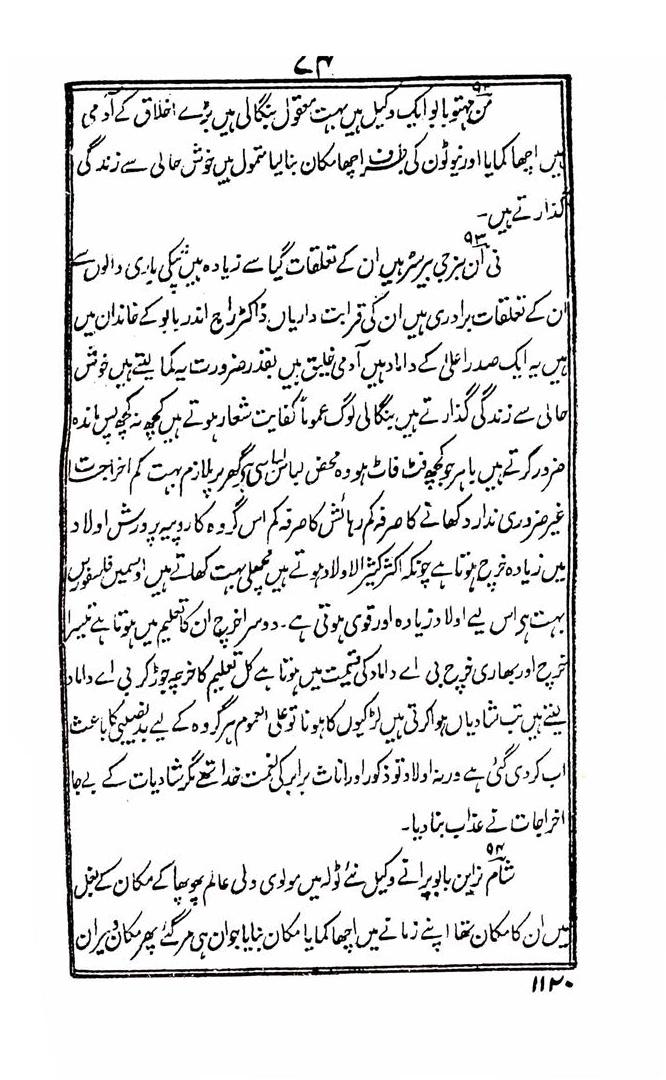 ۷۴
۹۲
من مہتو بابو ایک وکیل ہیں بہت معقول بنگالی ہیں بڑے اخلاق کے آدمی
ہیں اچھا کمایا اور نیوٹون کی طرف اچھا مکان بنا لیا متمول ہیں خوش حالی سے زندگی
گذارتے ہیں۔
۹۳
نی آن بنرجی بیرسٹر ہیں ان کے تعلقات گیا سے زیادہ ہیں پنکی باری والوں سے
ان کے تعلقات برادری ہیں ان کی قرابت داریاں ڈاکٹر راج اندر بابو کے خاندان میں
ہیں یہ ایک صدر اعلیٰ کے داماد ہیں آدمی خلیق ہیں بقدر ضرورت یہ کما لیتے ہیں خوش
حالی سے زندگی گذارتے ہیں بنگالی لوگ عموماً کفایت شعار ہوتے ہیں کچھ نہ کچھ پس ماندہ
ضرور کرتے ہیں باہر جو کچھ فٹ فاٹ ہو وہ محض لباس لباسی ہی گھر پر ملازم بہت کم اخراجات
غیر ضروری ندارد کھانے کا صرفہ کم رہائش کا صرفہ کم اس گروہ کا روپیہ پرورش اولاد
میں زیادہ خرچ ہوتا ہے چونکہ اکثر کثیر الاولاد ہوتے ہیں مچھلی بہت کھاتے ہیں اسمیں فلسفورس
بہت ہی اس لیے اولاد زیادہ اور قوی ہوتی ہے۔ دوسرا خرچ ان کا تعلیم میں ہوتا ہے تیسرا
خرچ اور بھاری خرچ بی اے داماد کی قیمت میں ہوتا ہے کل تعلیم کا خرچہ جوڑ کر بی اے داماد
لیتے ہیں تب شادیاں ہوا کرتی ہیں لڑکیوں کا ہونا تو علی العموم ہر گروہ کے لیے بدنصیبی کا باعث
اب کر دی گئی ہے ورنہ اولاد تو ذکور اور اناث برابر کی نعمت خدا تھے مگر شادیات کے بے جا
اخراجات نے عذاب بنا دیا۔
۹۴
شام نراین بابو پرانے وکیل نئے ٹولہ میں مولوی ولی عالم پھوپھا کے مکان کے بغل
میں ان کا مکان تھا اپنے زمانے میں اچھا کمایا مکان بنایا جوان ہی مر گئے پھر مکان ویران
۱۱۲۰